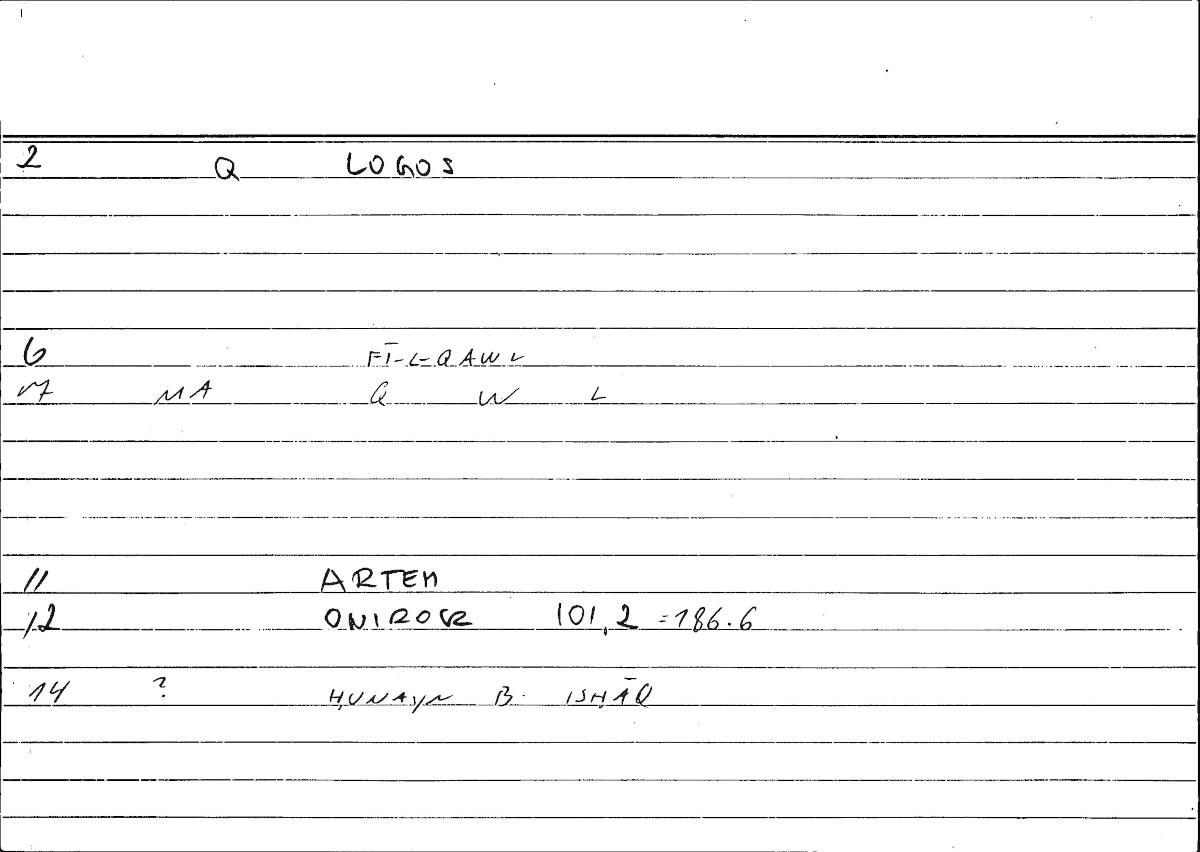 2 Q LOGOS
6 FĪ-L-QAWL
7 MA Q W L
11 ARTEM
12 ONIROCR 101,2 =186.6
14 ? ḤUNAYN B. ISḤĀQ